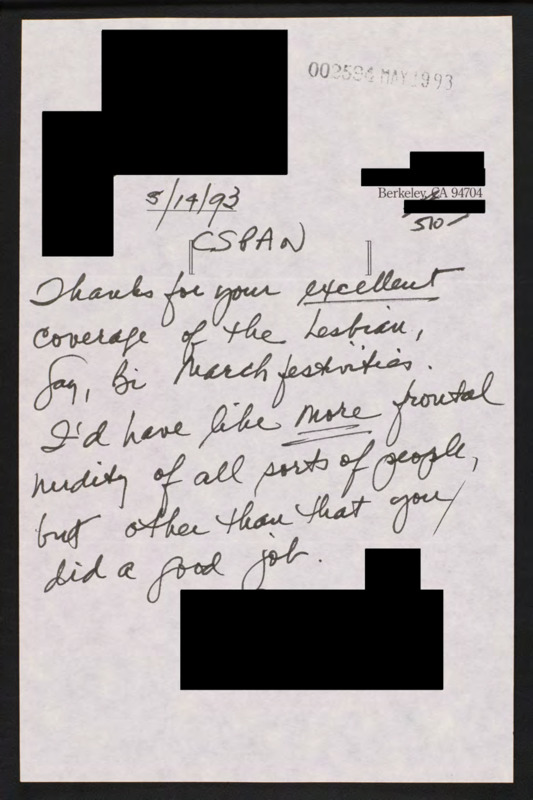 002594 MAY 1993
Berkeley, CA 94704
510-
5/14/93
CSPAN
Thanks for your excellent
coverage of the Lesbian,
Gay, Bi March festivities.
I'd have like more frontal
nudity of all sorts of people,
but other than that you
did a good job.